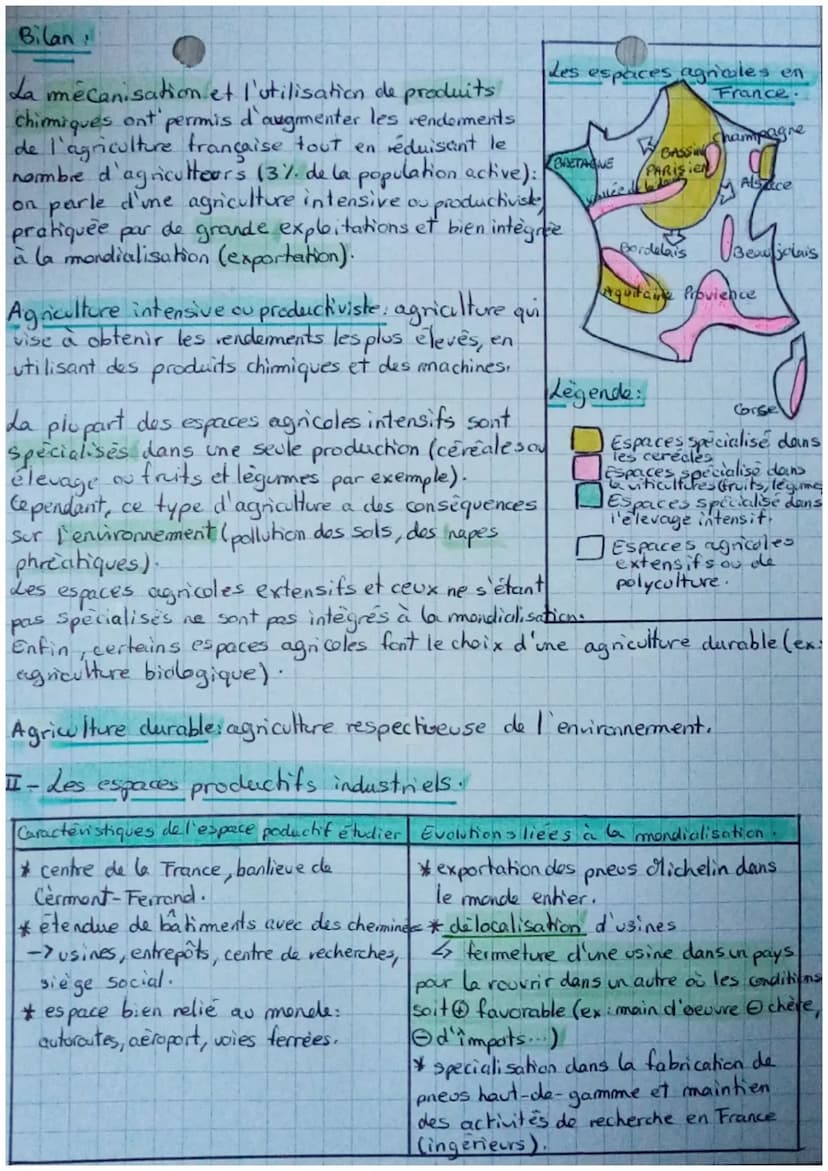 Bilan :
La mécanisation et l'utilisation de produits
chimiques ont permis d'augmenter les rendements
de l'agriculture française tout en réduisant le
nombre d'agriculteurs (3% de la population active) :
on parle d'une agriculture intensive ou productiviste,
pratiquée par de grande exploitations et bien intégrée
à la mondialisation (exportation).
Agriculture intensive ou productiviste : agriculture qui
vise à obtenir les rendements les plus élevés, en
utilisant des produits chimiques et des machines.
La plupart des espaces agricoles intensifs sont
spécialisés dans une seule production (céréales ou
élevage ou fruits et légumes par exemple).
Cependant, ce type d'agriculture a des conséquences
sur l'environnement (pollution des sols, des napes
phréatiques).
Les espaces agricoles extensifs et ceux ne s'étant
pas spécialisés ne sont pas intégrés à la mondialisation.
Enfin, certains espaces agricoles font le choix d'une agriculture durable (ex:
agriculture biologique).
Agriculture durable : agriculture respectueuse de l'environnerment.
Les espaces agricoles en
France.
Champagne
BRETAGNE
BASSIN
PARISIEN
Vallée de la Loire
Alsace
Bordelais
Beaujolais
Aquitaine
Provience
Corse
Légende :
Espaces spécialisé dans
les céréales
Espaces spécialisé dans
la viticultures (fruits, légume
Espaces spécialisé dans
l'élevage intensif.
Espaces agricoles
extensifs ou de
polyculture.
II - Les espaces productifs industriels.
Caractéristiques de l'espace poductif étudier
* centre de la France, banlieue de
Cérmont-Ferrand.
* étendue de bâtiments avec des cheminées
-> usines, entrepôts, centre de recherches,
siège social.
* espace bien relié au monde :
autoroutes, aéroport, voies ferrées.
Evolutions liées à la mondialisation.
* exportation des pneus Michelin dans
le monde entier.
* délocalisation d'usines
↳ fermeture d'une usine dans un pays
pour la rouvrir dans un autre où les conditions
soit ⊕ favorable (ex : main d'oeuvre ⊖ chère,
⊖ d'impots...)
* specialisation dans la fabrication de
pneus haut-de-gamme et maintien
des activités de recherche en France
(ingérieurs).